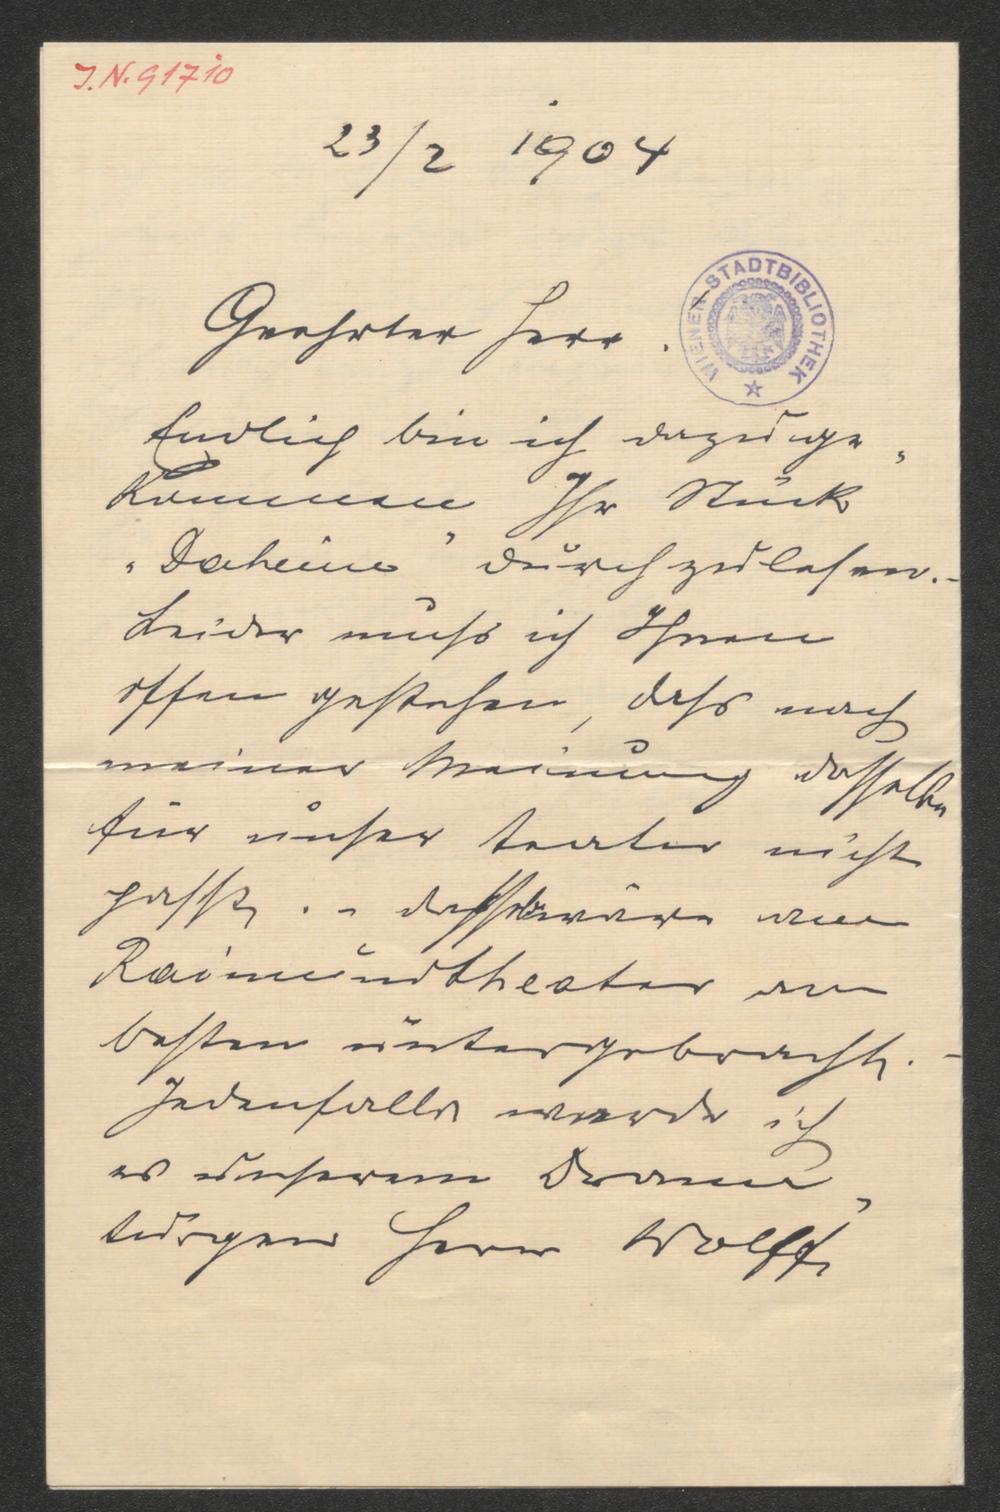 J.N. 91710
23/2 1904
WIENER STADTBIBLIOTHEK
Geehrter Herr.
Endlich bin ich dazu ge„
kommen Ihr Stück
„Daheim" durchzulesen. –
Leider muß ich Ihnen
offen gestehen, daß nach
meiner Meinung dasselbe
für unser Teater nicht
passt. – wäre am
Raimundtheater am
besten untergebracht. –
Jedenfalls werde ich
es unserem Drama„
turgen Herrn Wolff